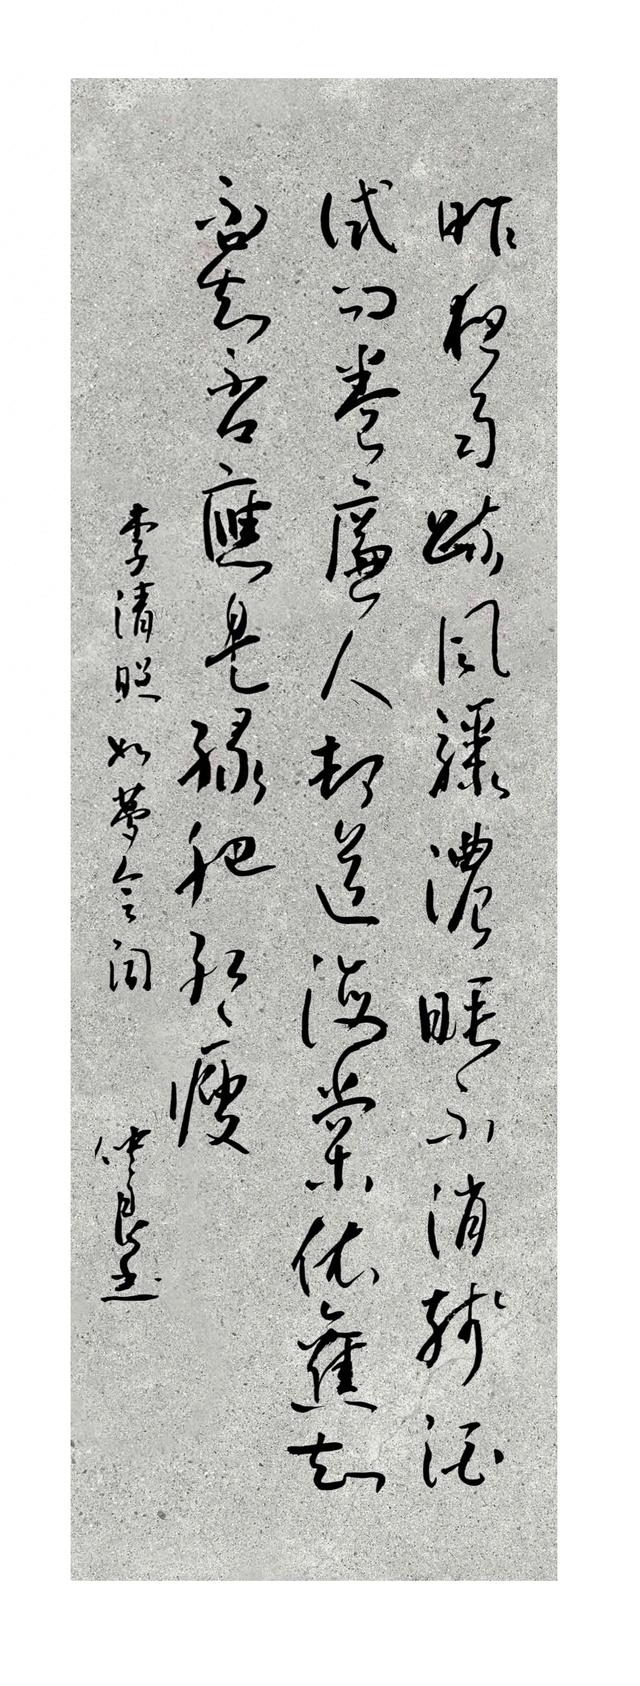 昨夜雨疏风骤浓睡不消残酒
试问卷廉人却道海棠依旧知
否知否应是绿肥红瘦
李清照如梦令词